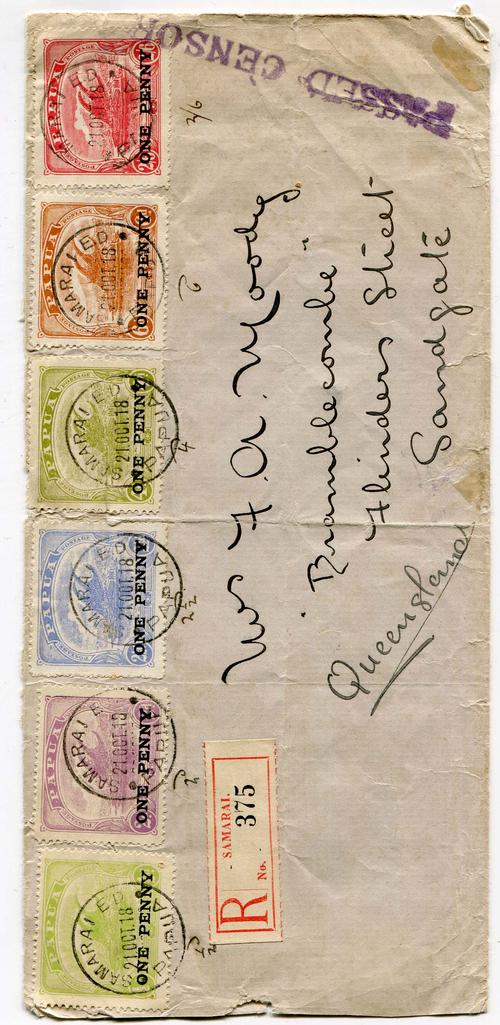 PASSED CENSOR
PAPUA
POSTAGE
ONE PENNY
SAMARAI ED
21 OCT. 18
PAPUA
PAPUA
POSTAGE
ONE PENNY
SAMARAI ED
21 OCT. 18
PAPUA
POSTAGE
ONE PENNY
SAMARAI ED
21 OCT. 18
PAPUA
PAPUA
POSTAGE
ONE PENNY
SAMARAI ED
21 OCT. 18
PAPUA
PAPUA
POSTAGE
ONE PENNY
SAMARAI E
21 OCT. 18
PAPUA
POSTAGE
ONE PENNY
21 OCT. 18
3/6
6
4
2½
2
½
Mrs F. A. Moody
"Bramblecombe"
Flinders Street
Sandgate
Queensland
R
SAMARAI.
No. 375